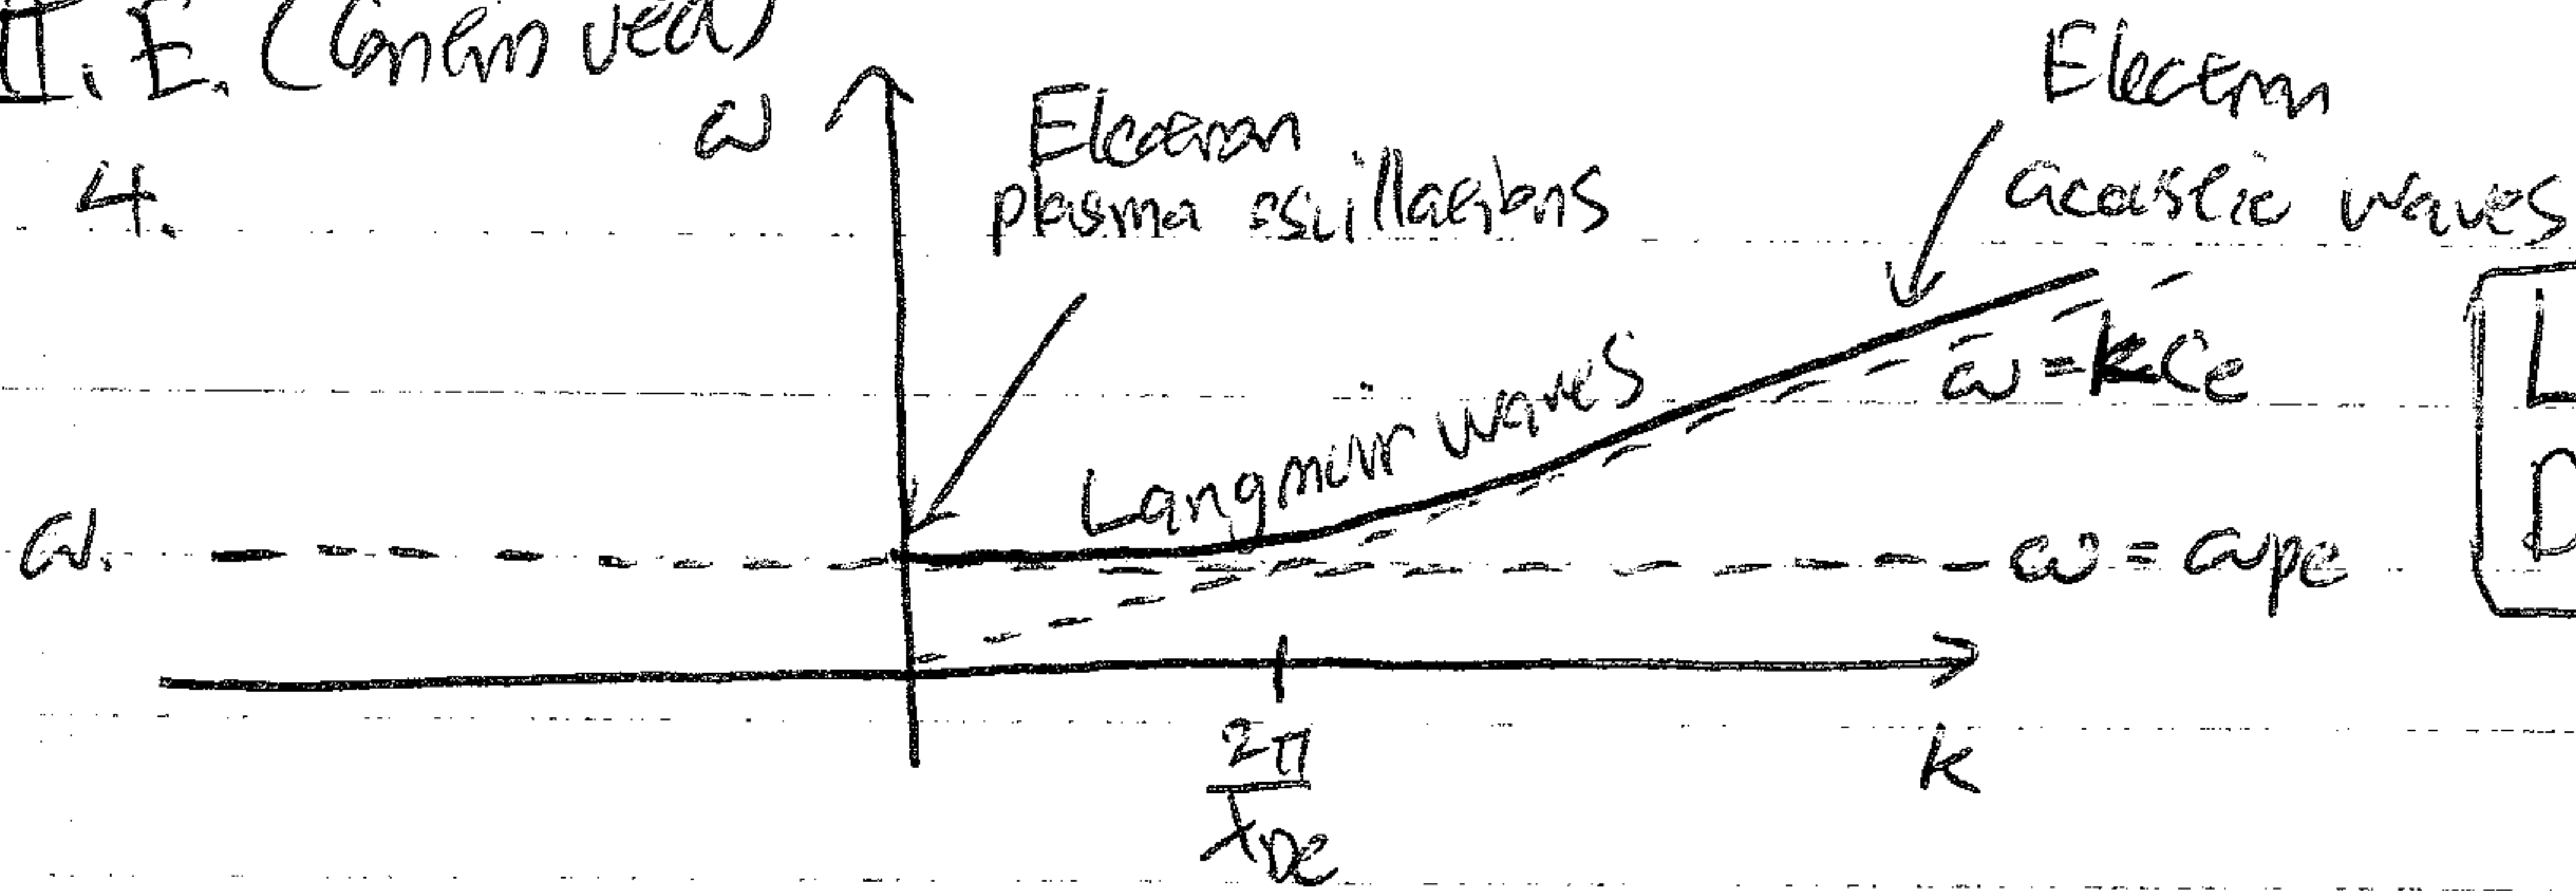 II. E. (Continued)
4.
ω
Electron
plasma oscillations
Electron
acoustic waves
Langmuir waves
ω = kCe
ω.
ω = ωpe
L
D
2π
λDe
k